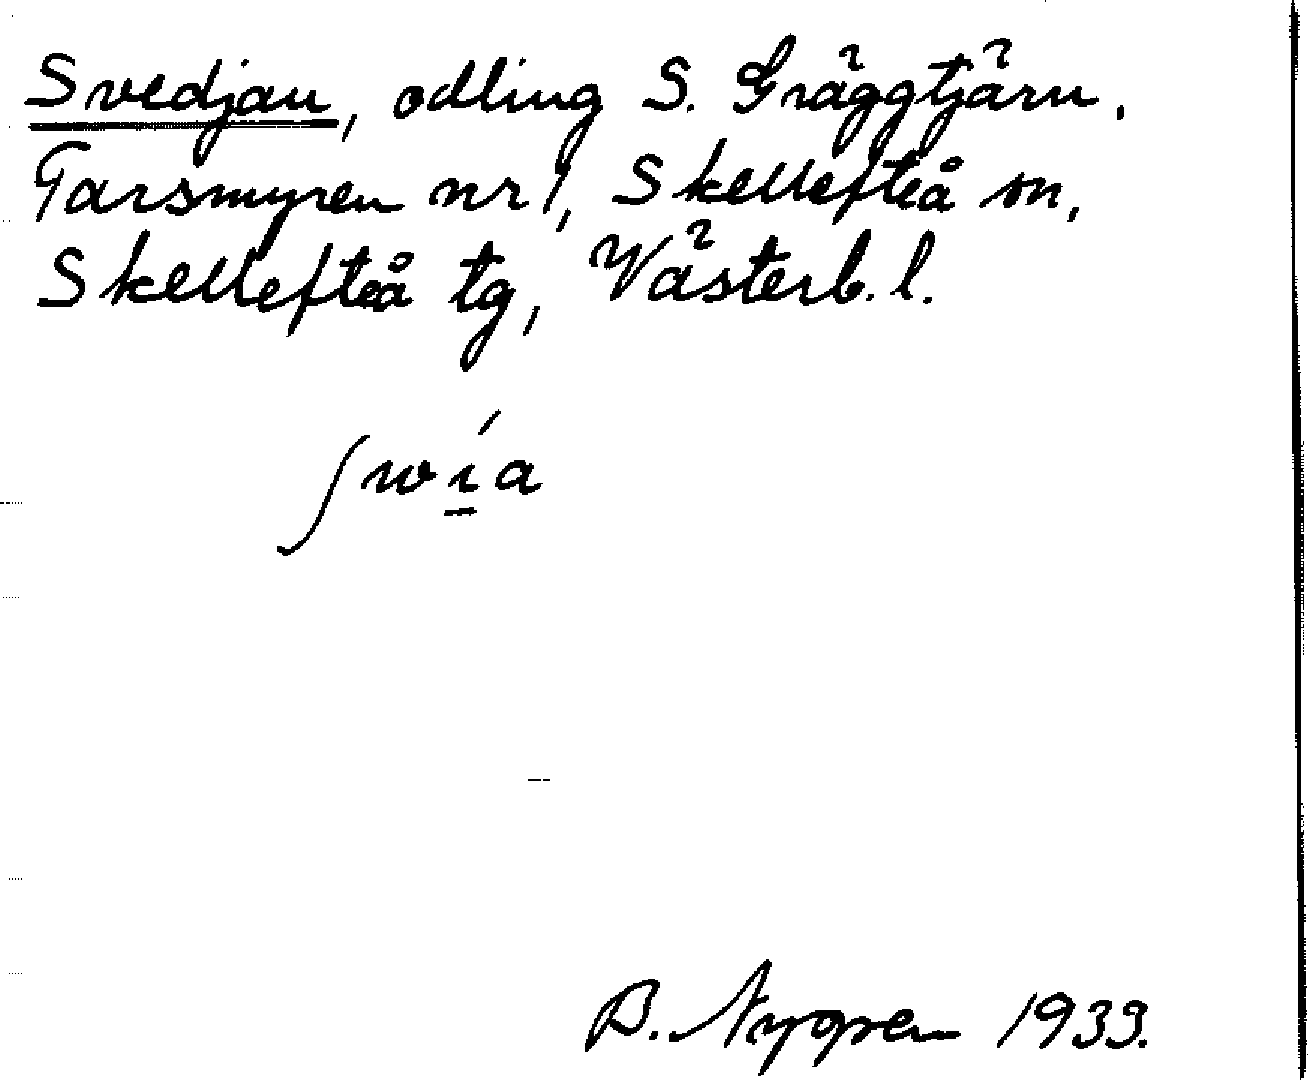 Svedjan, odling S. Gräggtjärn.
Tarsmyren nr 1, Skellefteå sn,
Skellefteå tg, Västerb. l.
ʃwía
B. Nygren 1933.